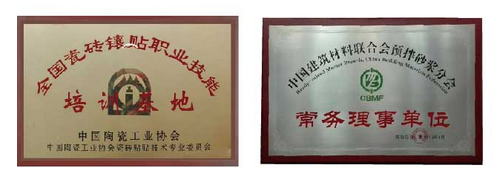 全国瓷砖镶贴职业技能
培训基地
中国陶瓷工业协会
中国陶瓷工业协会瓷砖粘贴技术专业委员会
中国建筑材料联合会预拌砂浆分会
CBMF
常务理事单位